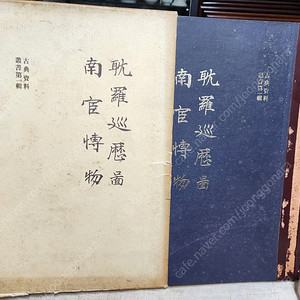 耽羅巡歷圖
南宦博物
古典資料
叢書第一輯
古典資料
叢書第一輯
耽羅巡歷圖
南宦博物
cafe.naver.com/joonggonara